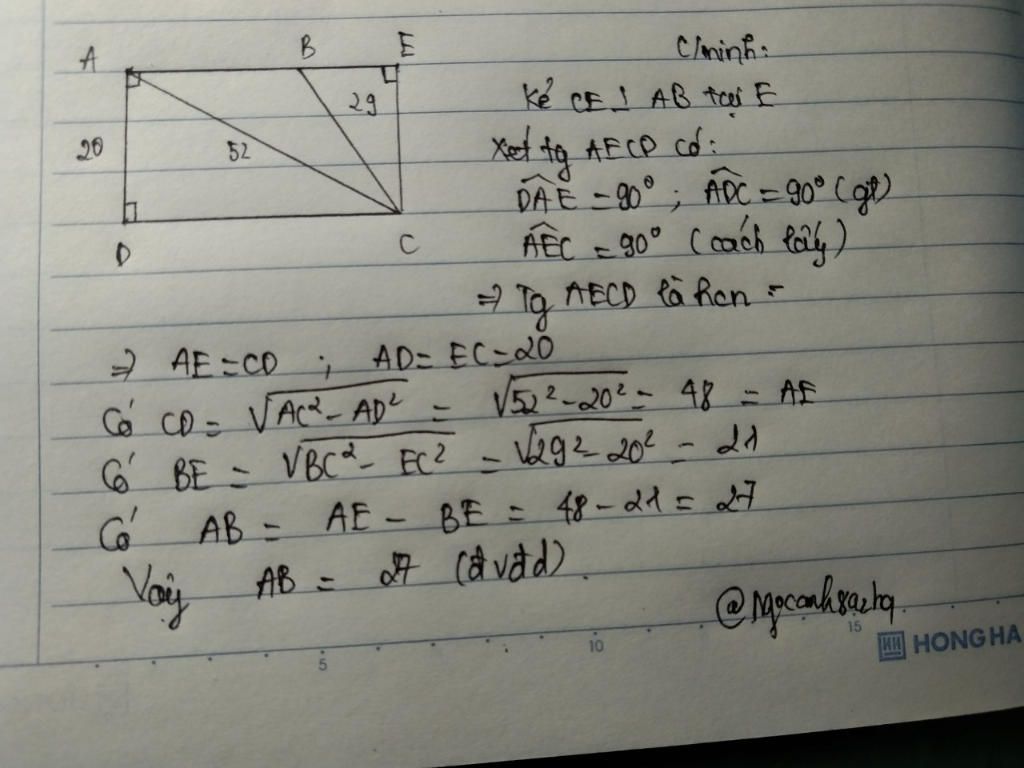 A B E
29
20
52
D C
C/minh:
Kẻ CE ⊥ AB tại E
Xét tg AECD có:
\widehat{DAE} = 90° ; \widehat{ADC} = 90° (gt)
\widehat{AEC} = 90° (cách lấy)
=> Tg AECD là hcn
=> AE = CD ; AD = EC = 20
Có CD = √(AC² - AD²) = √(52² - 20²) = 48 = AE
Có BE = √(BC² - EC²) = √(29² - 20²) = 21
Có AB = AE - BE = 48 - 21 = 27
Vậy AB = 27 (đvđd).
@Ngocanh8a2hq.
5 10 15
HONG HA